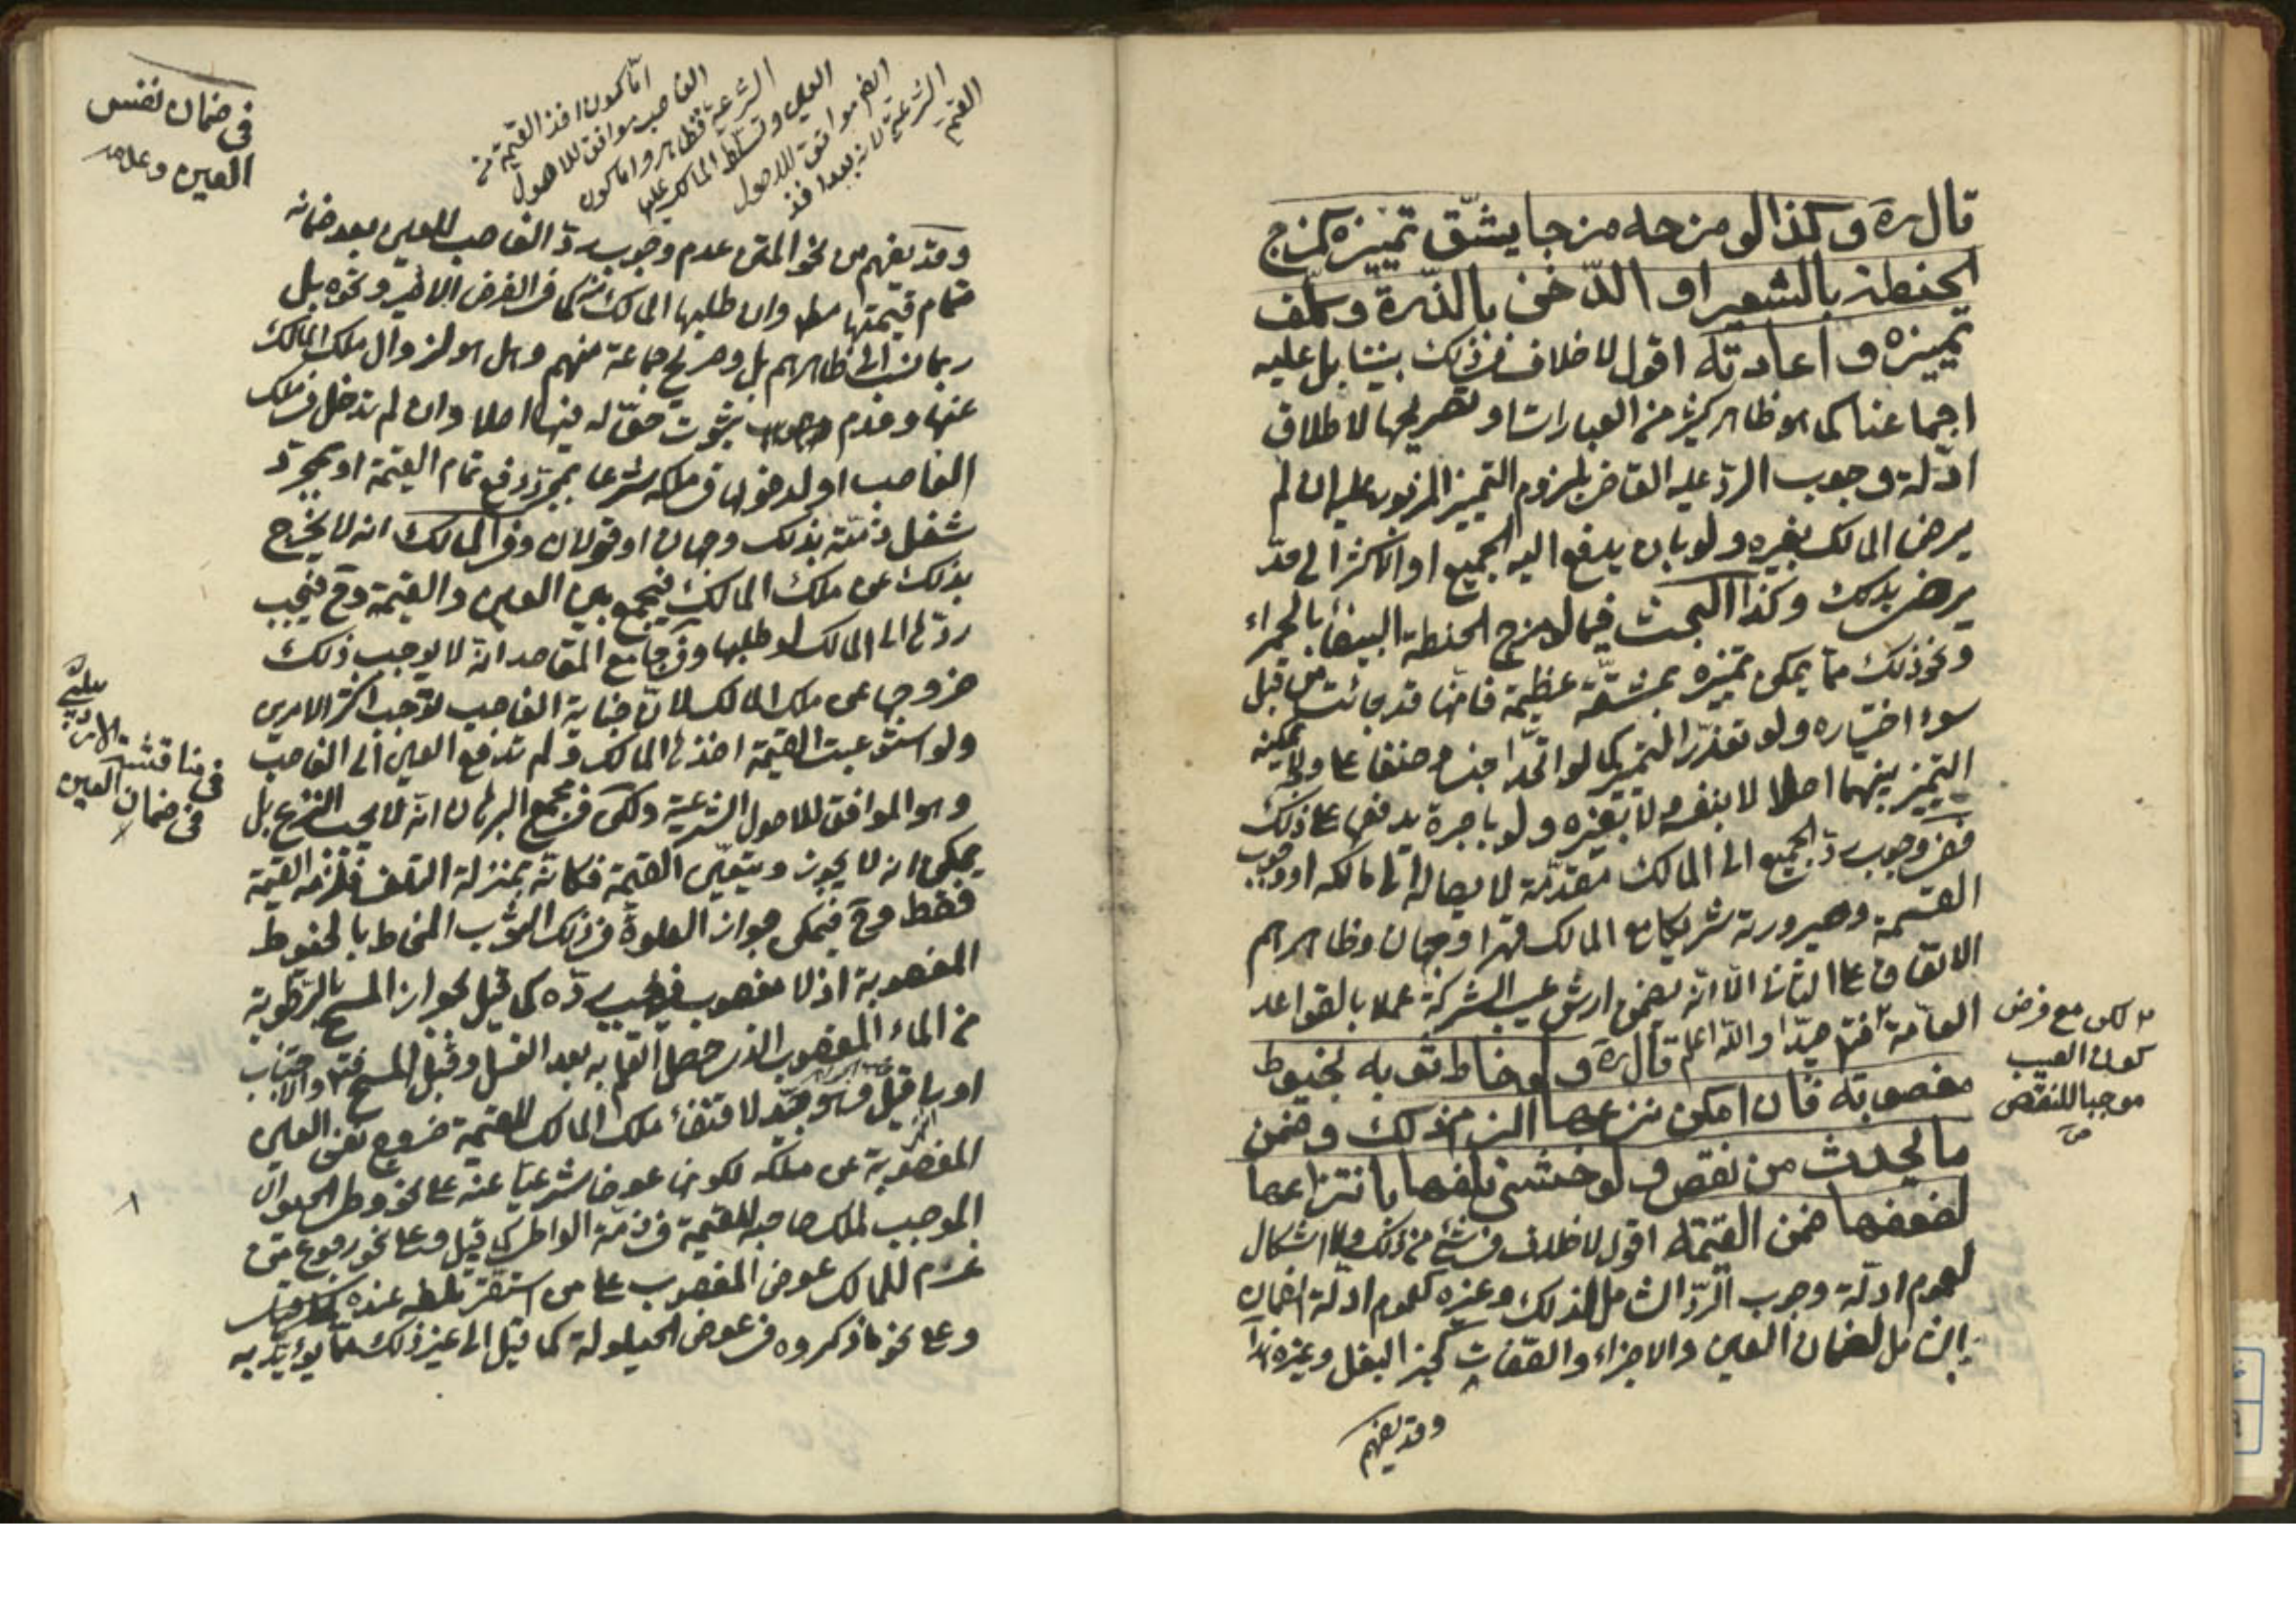 قال ره وكذا لو مزجه مزجا يشق تميزه كمزج
الحنطة بالشعير او الدخن بالذرة وكلف
تميزه واعادته اقول لا خلاف في ذلك بيننا بل عليه
اجماعنا كما هو ظاهر كثير من العبارات او تصريحها لاطلاق
ادلة وجوب الرد عليه القاضي بلزوم التميز المزبور عليه ان لم
يرض المالك بغيره ولو بان يدفع اليه الجميع او الاكثر الى قدر
يرضى بذلك وكذا البحث فيما لو مزج الحنطة البيضاء بالحمراء
ونحو ذلك مما يمكن تميزه بمشقة عظيمة فانها قد جائت من قبل
سوء اختياره ولو تعذر التميز كما لو اتحدا جنسا وصنفا ولا يمكنه
التميز بينهما اصلا لا بنفسه ولا بغيره ولو باجرة يدفعها على ذلك
ففي وجوب رد الجميع الى المالك مقدمة لايصاله الى مالكه او وجوب
القسمة وصيرورته شريكا مع المالك قهرا وجهان وظاهرهم
الاتفاق على الثاني الا انه يضمن ارش عيب الشركة عملا بالقواعد
العامة فتامل جدا والله اعلم قال ره ولو خاط ثوبه بخيوط
مغصوبة فان امكن نزعها الزم ذلك وضمن
ما يحدث من نقص ولو خشي تلفها بانتزاعها
لضعفها ضمن القيمة اقول لا خلاف في شئ من ذلك ولا اشكال
لعموم ادلة وجوب الرد الشامل لذلك وغيره كعموم ادلة الضمان
الشامل لضمان العين والاجزاء والصفات كجز البغل وغيره
وقد يفهم
لكن مع فرض
كون العيب
موجبا للنقص
اما كون اخذ القيمة من
الغاصب موافق للاصول
الشرعية فظاهر واما كون
العين وتسلط المالك عليها
ايضا موافق للاصول
الشرعية لانه بعد اخذ
القيمة
في ضمان نفس
العين وعدمه
وقد يفهم من نحو المتن عدم وجوب رد الغاصب للعين بعد ضمانه
تمام قيمتها وان طلبها المالك كما في الفرض ونحوه بل
ربما نسب الى ظاهرهم بل وصريح جماعة منهم وهل هو لزوال ملك المالك
عنها وعدم ثبوت حق له فيها اصلا وان لم تدخل في ملك
الغاصب او لدخولها في ملكه شرعا بمجرد دفع تمام القيمة او بمجرد
شغل ذمته بذلك وجهان او قولان وفي المسالك انه لا يخرج
بذلك عن ملك المالك فيجمع بين العين والقيمة وح فيجب
ردها الى المالك لو طلبها وفي جامع المقاصد انه لا يوجب ذلك
خروجها عن ملك المالك لان جناية الغاصب توجب اكثر الامرين
ولو استوعبت القيمة اخذها المالك ولم تدفع العين الى الغاصب
وهو الموافق للاصول الشرعية ولكن في مجمع البرهان انه لا يجب النزع بل
يمكن ان لا يجوز ويتعين القيمة فكانه بمنزلة التلف فيلزمه القيمة
فقط وح فيمكن جواز الصلوة في ذلك الثوب المخاط بالخيوط
المغصوبة اذ لا مغصوب فيه يجب رده كما قيل بجواز المسح بالرطوبة
من الماء المغصوب الذي حصل العلم به بعد الغسل وقبل المسح
المغصوبة عن ملكه لكونه عوضا شرعيا عنه على نحو وطى الحيوان
الموجب لملك صاحبه القيمة في ذمة الواطى كما قيل وعلى نحو رجوع من
غرم للمالك عوض المغصوب على من استقر تلفه عنده
وعلى نحو ما ذكروه في عوض الحيلولة كما قيل الى غير ذلك مما يؤيد به
في مناقشة
في ضمان العين